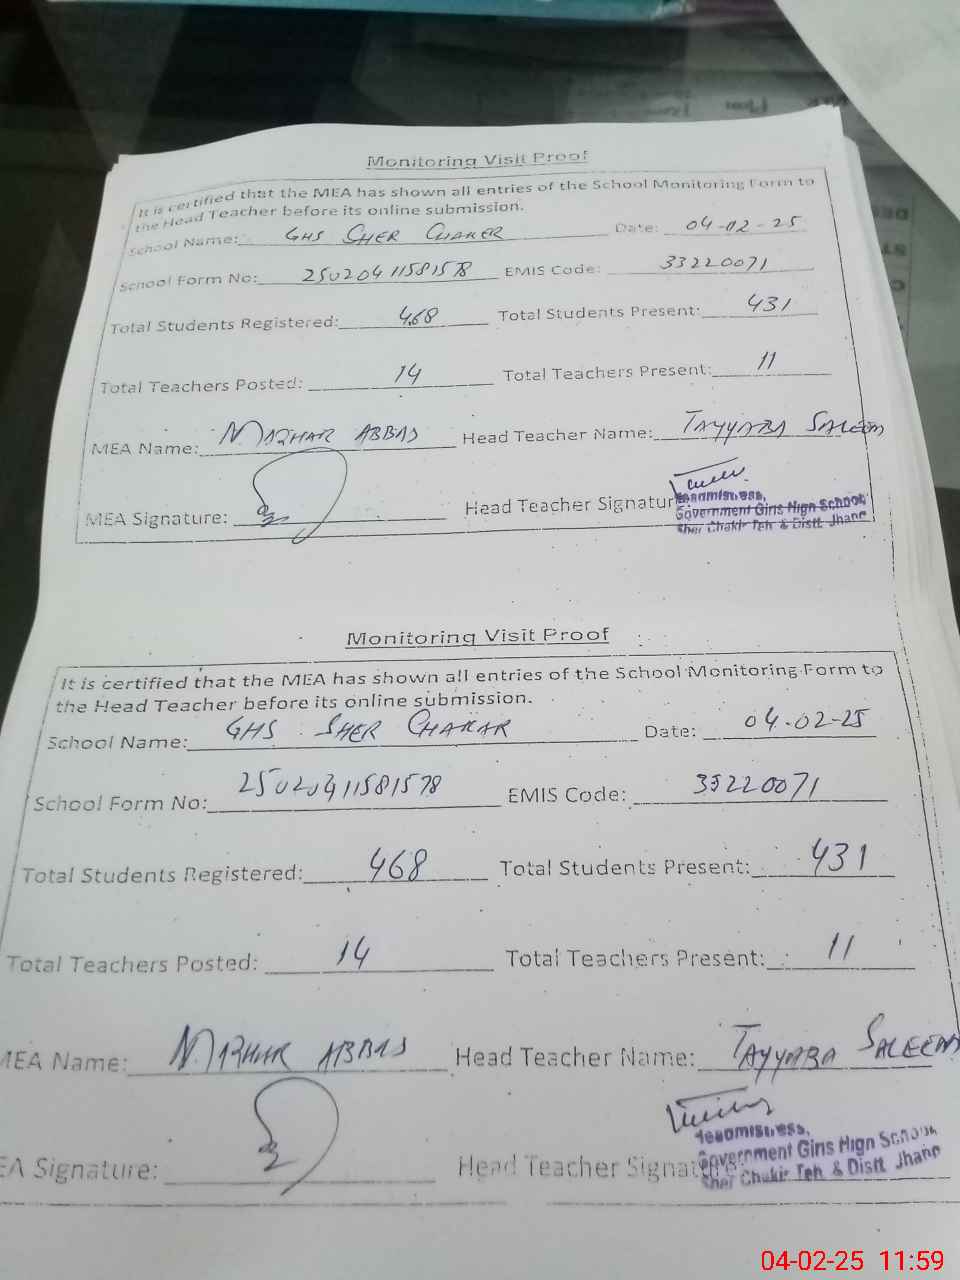 Monitoring Visit Proof
It is certified that the MEA has shown all entries of the School Monitoring Form to
the Head Teacher before its online submission.
School Name: GHS SHER CHAKER Date: 04-02-25
School Form No: 25020411581578 EMIS Code: 33220071
Total Students Registered: 468 Total Students Present: 431
Total Teachers Posted: 14 Total Teachers Present: 11
MEA Name: MAZHAR ABBAS Head Teacher Name: TAYYABA SALEEM
MEA Signature: Head Teacher Signature
Headmistress,
Government Girls High School
Sher Chakir Teh & Distt Jhang
Monitoring Visit Proof
It is certified that the MEA has shown all entries of the School Monitoring Form to
the Head Teacher before its online submission.
School Name: GHS SHER CHAKAR Date: 04-02-25
School Form No: 25020411581578 EMIS Code: 33220071
Total Students Registered: 468 Total Students Present: 431
Total Teachers Posted: 14 Total Teachers Present: 11
MEA Name: MAZHAR ABBAS Head Teacher Name: TAYYABA SALEEM
EA Signature: Head Teacher Signature
Headmistress,
Government Girls High School
Sher Chakir Teh & Distt Jhang
04-02-25 11:59